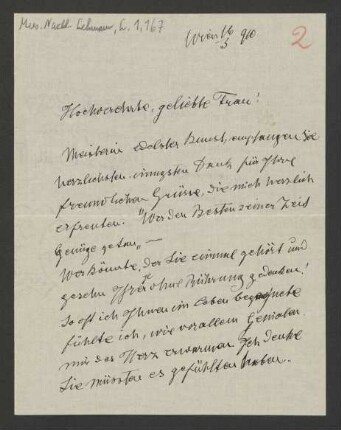 Mus. Nachl. Lehmann, L. 1,167
2
Wien 16/3 910
Hochverehrte, geliebte Frau!
Meisterin edelster Kunst, empfangen Sie
herzlichsten innigsten Dank für Ihre
freundlichen Grüsse, die mich herzlich
erfreuten. "Wer den Besten seiner Zeit
Genüge getan" —
Wer könnte, der Sie einmal gehört und
gesehn Ihrer ohne Rührung gedenken!
So oft ich Ihnen im Leben begegnete
fühlte ich, wie vor allem Genialen
mir das Herz erwarmen. Ich denke
Sie müssten es gefühlt haben.